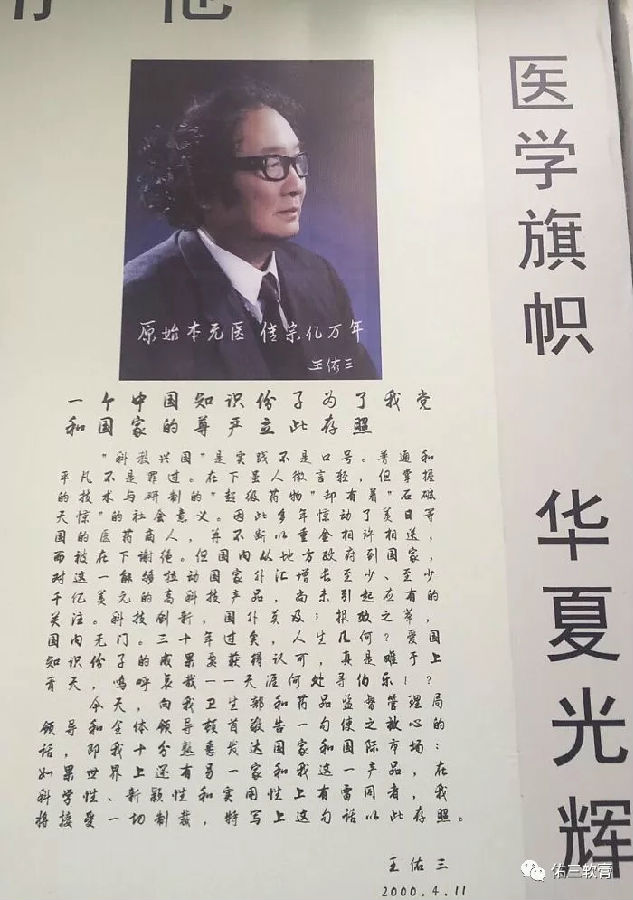 医学旗帜 华夏光辉
原始本元医 传宗亿万年
王佑三
一个中国知识份子为了我党
和国家的尊严立此存照
"科教兴国"是实践不是口号。普通和
平凡不是罪过。在下显人微言轻,但掌握
的技术与研制的"超级药物"却有着"石破
天惊"的社会意义。因此多年惊动了美日等
国的医药商人,并不断以重金相许相送,
而被在下谢绝。但国内从地方政府到国家,
对这一能够拉动国家外汇增长至少、至少
千亿美元的高科技产品,尚未引起应有的
关注。科技创新,国外莫及;报效之举,
国内无门。三十年过矣,人生几何?爱国
知识份子的成果要获得认可,真是难于上
青天,呜呼哀哉——天涯何处寻伯乐!?
今天,向我卫生部和药品监督管理局
领导和全体领导顿首敬告一句使之放心的
话,即我十分熟悉发达国家和国际市场:
如果世界上还有另一家和我这一产品,在
科学性、新颖性和实用性上有雷同者,我
将接受一切制裁,特写上这句话以此存照。
王佑三
2000.4.11
佑三软膏